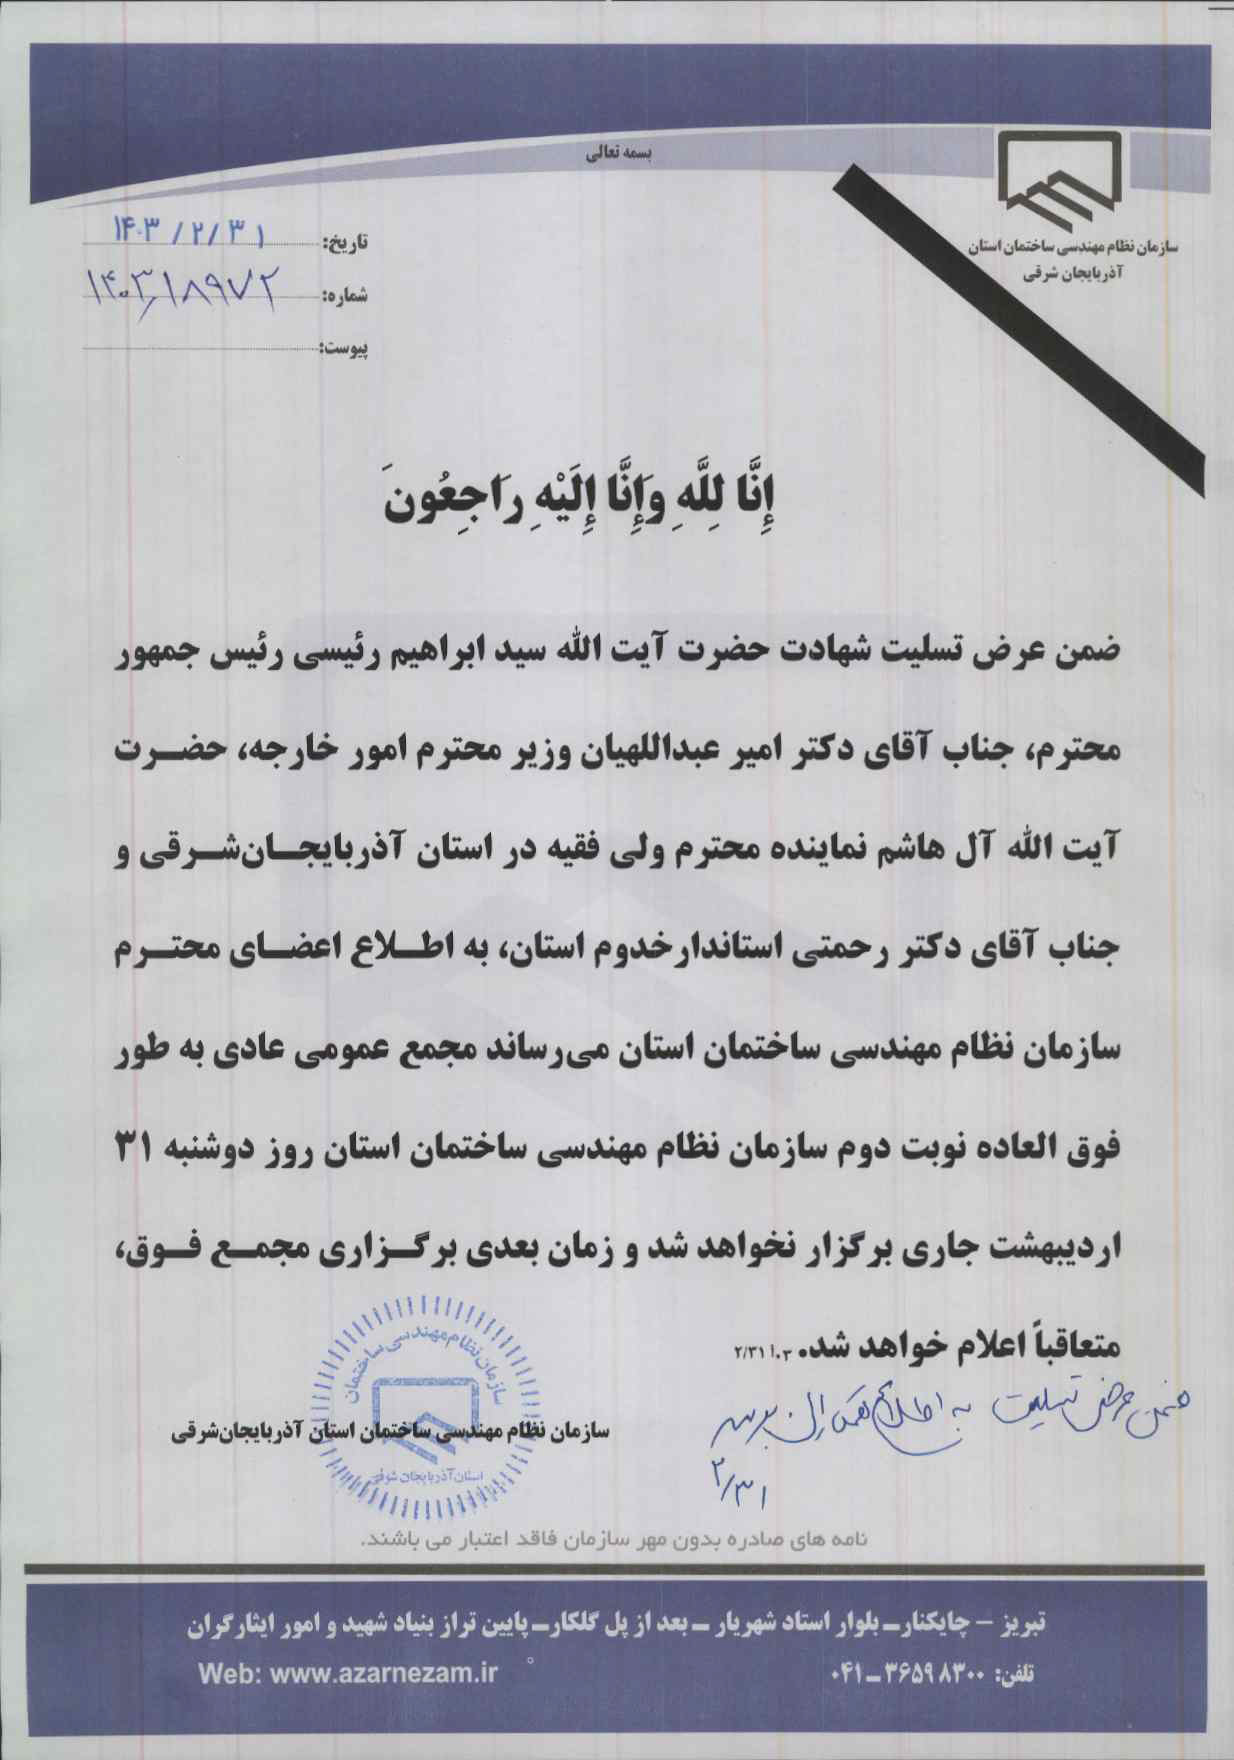 بسمه تعالی
سازمان نظام مهندسی ساختمان استان
آذربایجان شرقی
تاریخ: ۱۴۰۳/۲/۳۱
شماره: ۱۴۰۳/۱۸۹۷۲
پیوست:
إِنَّا لِلَّهِ وَإِنَّا إِلَيْهِ رَاجِعُونَ
ضمن عرض تسلیت شهادت حضرت آیت الله سید ابراهیم رئیسی رئیس جمهور
محترم، جناب آقای دکتر امیر عبداللهیان وزیر محترم امور خارجه، حضرت
آیت الله آل هاشم نماینده محترم ولی فقیه در استان آذربایجان‌شرقی و
جناب آقای دکتر رحمتی استاندار خدوم استان، به اطلاع اعضای محترم
سازمان نظام مهندسی ساختمان استان می‌رساند مجمع عمومی عادی به طور
فوق العاده نوبت دوم سازمان نظام مهندسی ساختمان استان روز دوشنبه ۳۱
اردیبهشت جاری برگزار نخواهد شد و زمان بعدی برگزاری مجمع فوق،
متعاقباً اعلام خواهد شد.
ضمن عرض تسلیت به اطلاع
۲/۳۱
سازمان نظام مهندسی ساختمان
استان آذربایجان شرقی
سازمان نظام مهندسی ساختمان استان آذربایجان‌شرقی
نامه های صادره بدون مهر سازمان فاقد اعتبار می باشند.
تبریز – چایکنار – بلوار استاد شهریار – بعد از پل گلکار – پایین تراز بنیاد شهید و امور ایثارگران
تلفن: ۳۶۵۹۸۳۰۰–۰۴۱
Web: www.azarnezam.ir